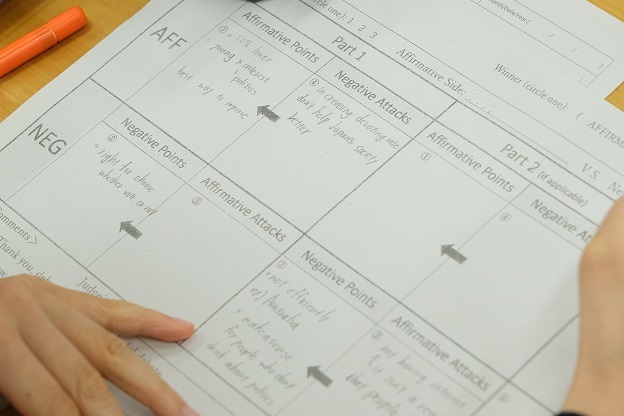 (circle one): 1 2 3
Winner (circle one) ( AFFIRM
Affirmative Side:
VS. Ne
Part 1
Part 2 (if applicable)
AFF
Affirmative Points
①
10% lower
young × interest
politics
best way to improve
Negative Attacks
④ in creasing devoting rate
don't help Japan's society
better
Affirmative Points
①
Negative At
④
NEG
Negative Points
②
right for choice
whether vote or not
Affirmative Attacks
③
Negative Points
②
not efficiently
ex) Australia
× make a sense
for people who don't
think about politics
Affirmative Attacks
③
not having interest
that people
Comments>
Thank you
Judge